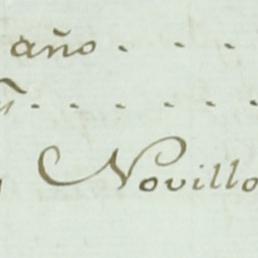 año . . .
Novillo